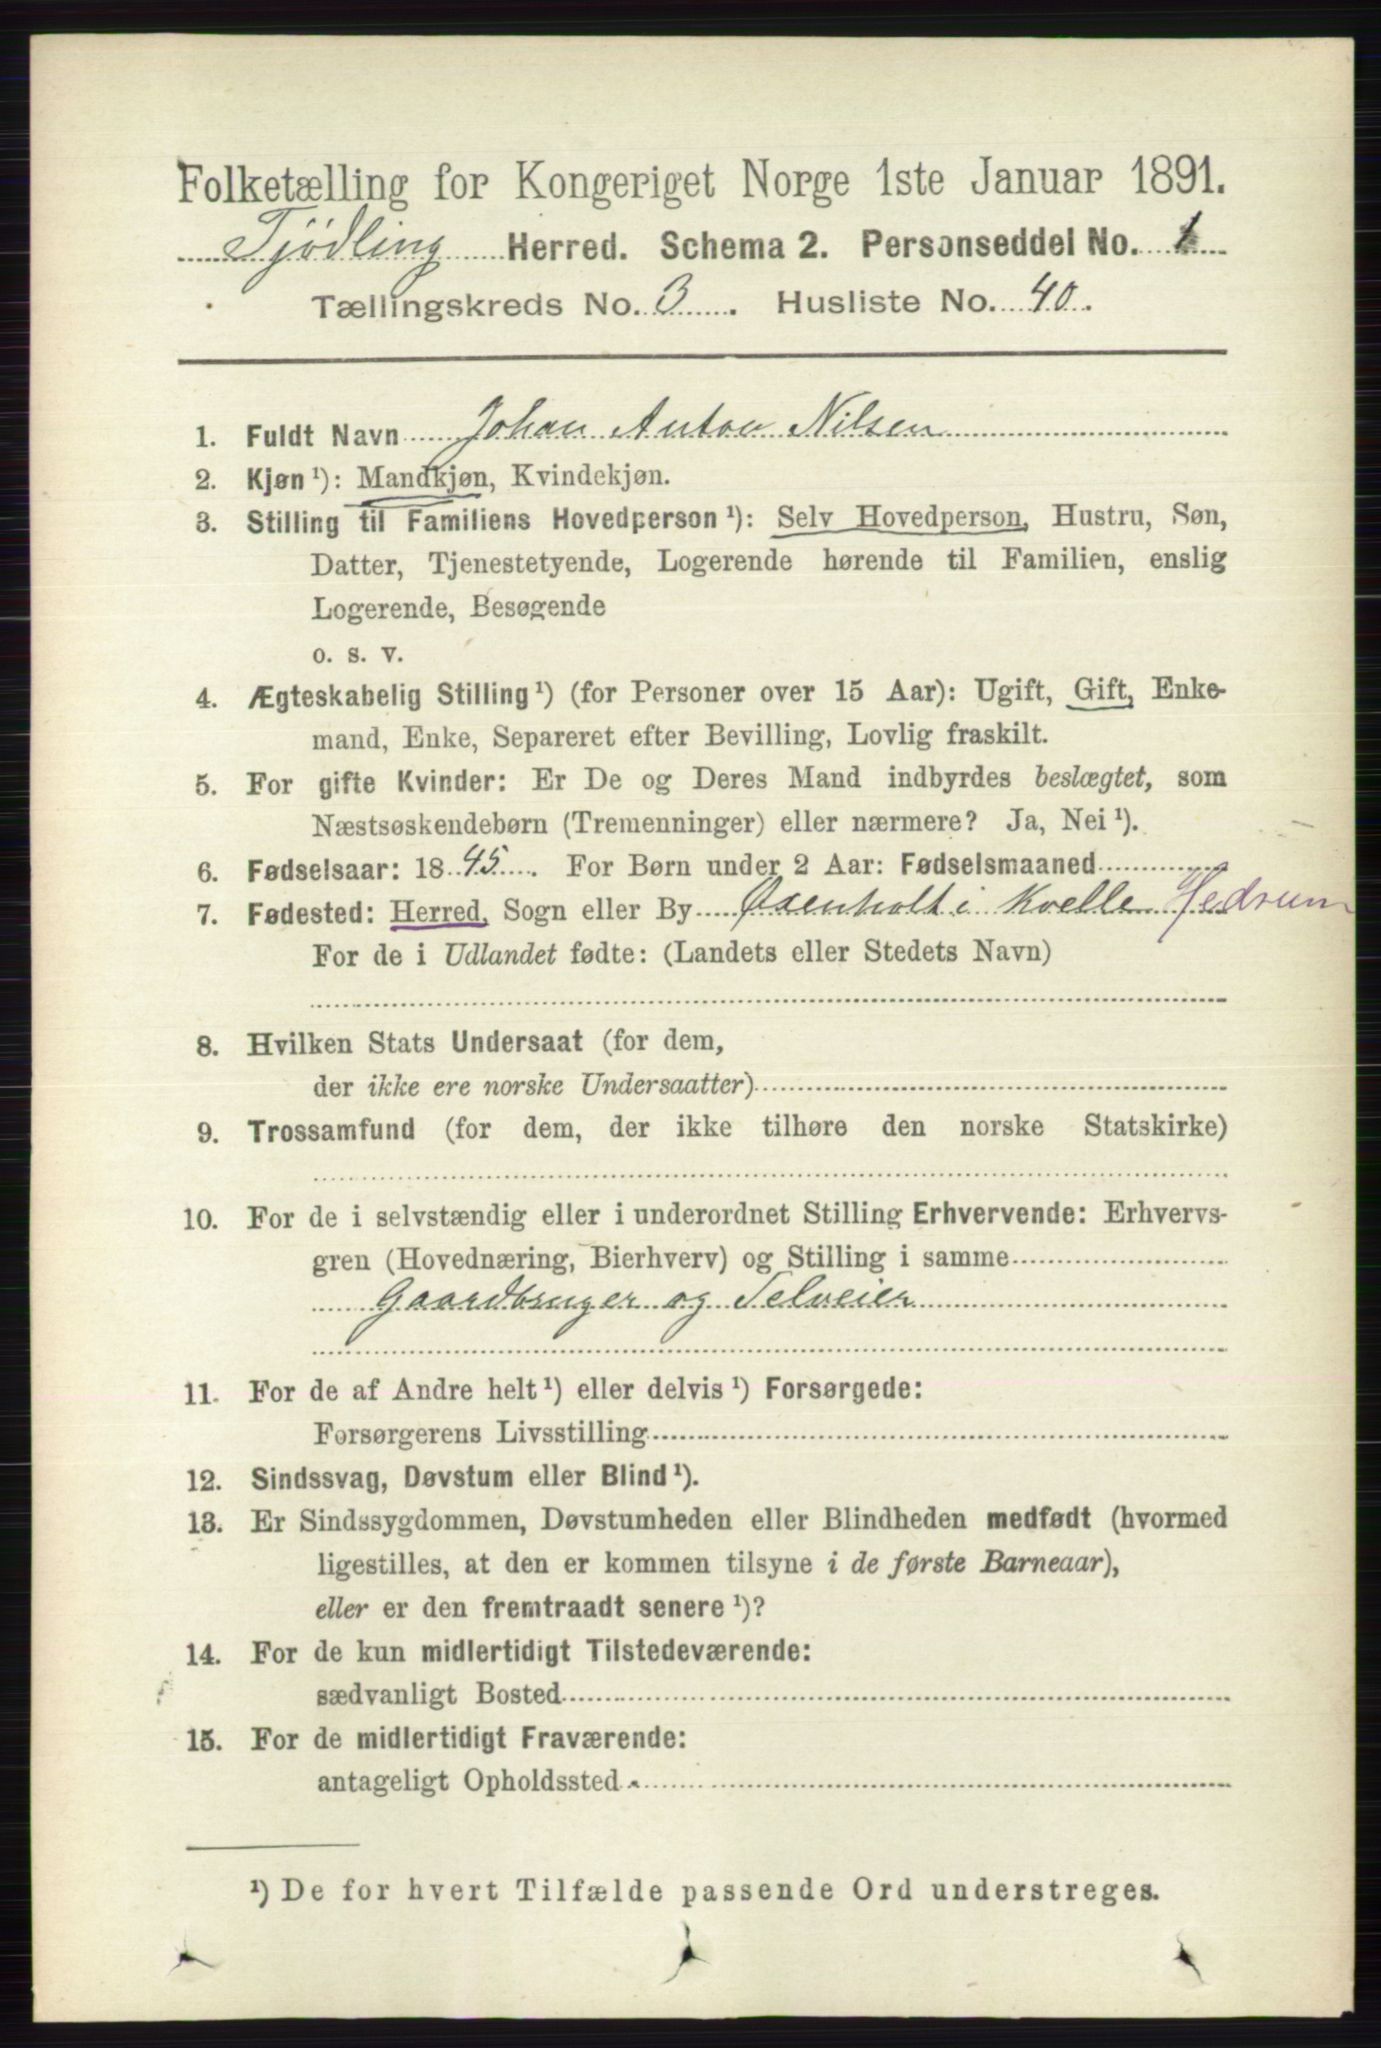 Folketælling for Kongeriget Norge 1ste Januar 1891.
Tjødling Herred. Schema 2. Personseddel No. 1
Tællingskreds No. 3. Husliste No. 40.
1. Fuldt Navn Johan Anton Nilsen
2. Kjøn ¹): Mandkjøn, Kvindekjøn.
3. Stilling til Familiens Hovedperson ¹): Selv Hovedperson, Hustru, Søn,
Datter, Tjenestetyende, Logerende hørende til Familien, enslig
Logerende, Besøgende
o. s. v.
4. Ægteskabelig Stilling ¹) (for Personer over 15 Aar): Ugift, Gift, Enke-
mand, Enke, Separeret efter Bevilling, Lovlig fraskilt.
5. For gifte Kvinder: Er De og Deres Mand indbyrdes beslægtet, som
Næstsøskendebørn (Tremenninger) eller nærmere? Ja, Nei ¹).
6. Fødselsaar: 1845. For Børn under 2 Aar: Fødselsmaaned
7. Fødested: Herred, Sogn eller By Oxenholt i Kvelle Hedrum
For de i Udlandet fødte: (Landets eller Stedets Navn)
8. Hvilken Stats Undersaat (for dem,
der ikke ere norske Undersaatter)
9. Trossamfund (for dem, der ikke tilhøre den norske Statskirke)
10. For de i selvstændig eller i underordnet Stilling Erhvervende: Erhvervs-
gren (Hovednæring, Bierhverv) og Stilling i samme
Gaardbruger og Selveier
11. For de af Andre helt ¹) eller delvis ¹) Forsørgede:
Forsørgerens Livsstilling
12. Sindssvag, Døvstum eller Blind ¹).
13. Er Sindssygdommen, Døvstumheden eller Blindheden medfødt (hvormed
ligestilles, at den er kommen tilsyne i de første Barneaar),
eller er den fremtraadt senere ¹)?
14. For de kun midlertidigt Tilstedeværende:
sædvanligt Bosted
15. For de midlertidigt Fraværende:
antageligt Opholdssted
¹) De for hvert Tilfælde passende Ord understreges.